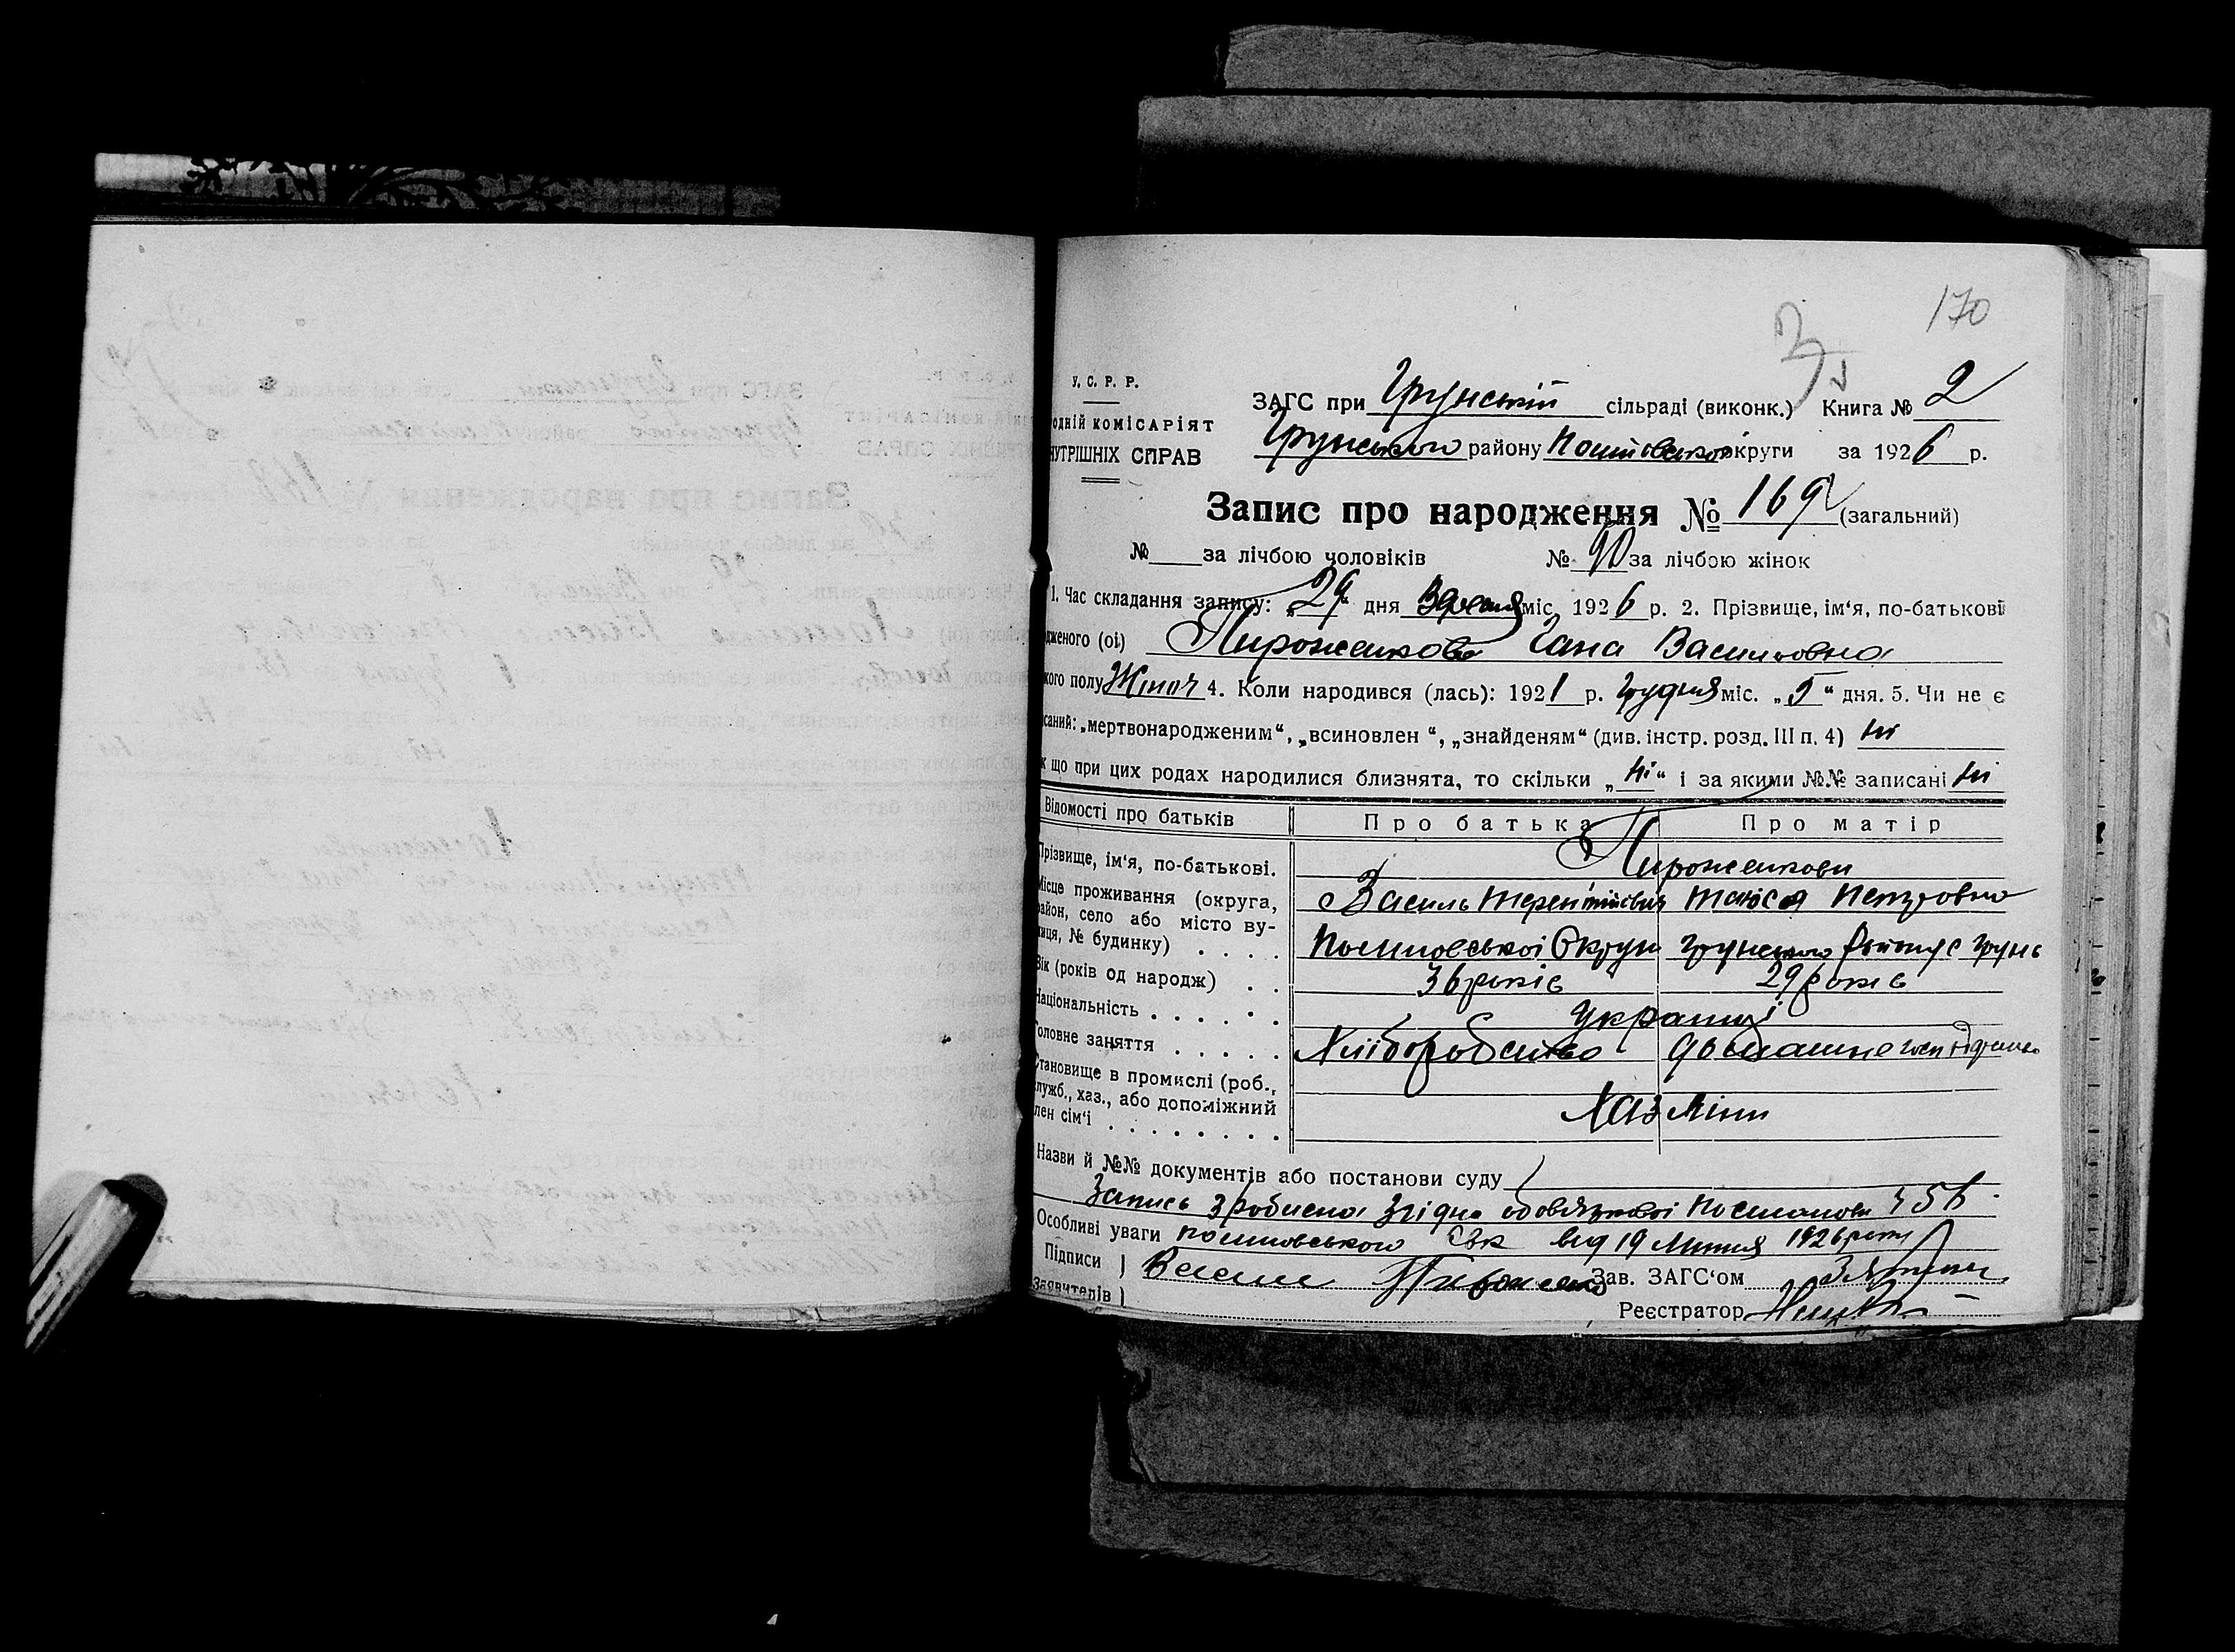 170
У. С. Р. Р.
ЗАГС при Грунській сільраді (виконк.) Книга № 2
одній комісаріят
Грунського району Полтовської округи за 1926 р.
нутрішніх справ
Запис про народження № 169 (загальний)
№ за лічбою чоловіків № 90 за лічбою жінок
1. Час складання запису: „29“ дня Вресня міс. 1926 р. 2. Прізвище, ім‘я, по-батькові
дженого (ої) Пироженкова Гана Василовна
кого полу Жіноч 4. Коли народився (лась): 1921 р. Грудня міс. „5“ дня. 5. Чи не є
саний: „мертвонародженим“, „всиновлен “, „знайденям“ (див. інстр. розд. III п. 4) ні
к що при цих родах народилися близнята, то скільки „ні“ і за якими №№ записані ні
Відомості про батьків Про батька Про матір
Прізвище, ім‘я, по-батькові. Пироженкови
Місце проживання (округа, Василь Терентійович Таюся Петровна
район, село або місто ву-
лиця, № будинку) . . . . Полтовської Округи Грунського Району с Грунь
Вік (років од народж) . . 36 років 29 років
Національність . . . . . . Українці
Головне заняття . . . . . Хліборобство домашне
Становище в промислі (роб.,
служб., хаз., або допоміжний Хазяіни
лен сім‘ї . . . . . . . .
Назви й №№ документів або постанови суду
Запись зроблена згідно обовязкової постанови
Особливі уваги полтовського Овк від 19 Липня 1926 року
Підписи Васил Зав. ЗАГС‘ом
заявителів
Реєстратор